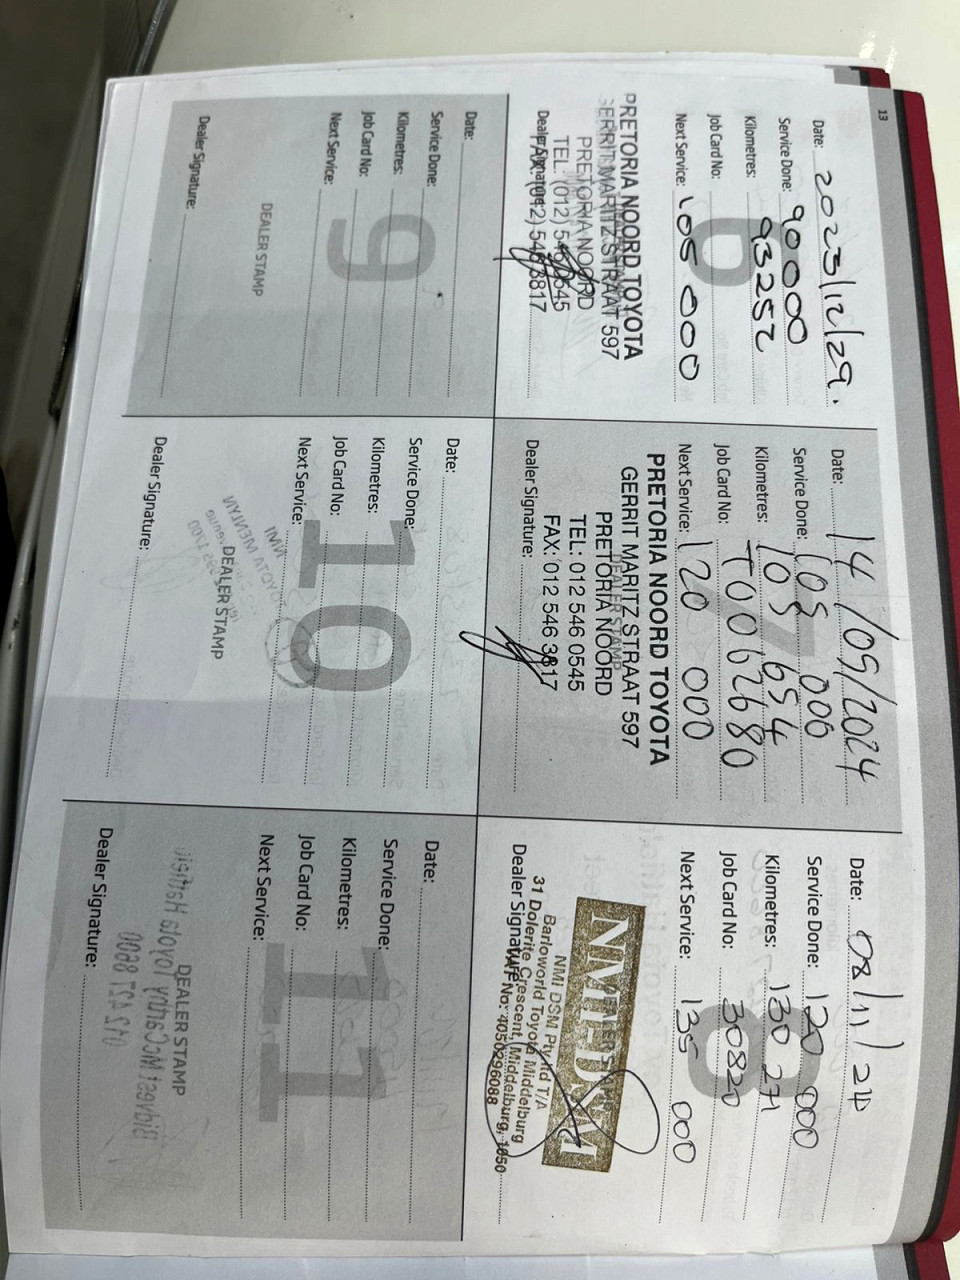 13
Date: 2023/12/29.
Service Done: 90000
Kilometres: 93252
Job Card No:
Next Service: 105 000
6
PRETORIA NOORD TOYOTA
GERRIT MARITZ STRAAT 597
PRETORIA NOORD
TEL: (012) 546 0545
FAX: (012) 546 3817
Dealer Signature:
Date: 14/05/2024
Service Done: 105 000
Kilometres: 105 654
Job Card No: T0062680
Next Service: 120 000
7
PRETORIA NOORD TOYOTA
GERRIT MARITZ STRAAT 597
DEALER STAMP
PRETORIA NOORD
TEL: 012 546 0545
FAX: 012 546 3817
Dealer Signature:
Date: 08/11/24
Service Done: 120 000
Kilometres: 130 271
Job Card No: 30820
Next Service: 135 000
8
NMI-DSM
DEALER STAMP
NMI DSM Pty Ltd T/A
Barloworld Toyota Middelburg
31 Dolerite Crescent, Middelburg, 1050
VAT No: 4050296088
Dealer Signature:
Date:
Service Done:
Kilometres:
Job Card No:
Next Service:
9
DEALER STAMP
Dealer Signature:
Date:
Service Done:
Kilometres:
Job Card No:
Next Service:
10
DEALER STAMP
Dealer Signature:
Date:
Service Done:
Kilometres:
Job Card No:
Next Service:
11
DEALER STAMP
Dealer Signature: